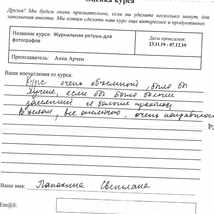 Оценка курса
Друзья! Мы будем очень признательны, если вы уделите несколько минут для
заполнения анкеты. Мы хотим сделать наш курс еще интереснее и продуктивнее.
Название курса: Журнальная ретушь для
фотографов
Дата проведения:
23.11.19 - 07.12.19
Преподаватель: Анна Арчен
Ваши впечатления от курса:
Курс очень объемный, было бы
лучше, если бы было больше
занятий и больше практики
В целом, все отлично, очень понравилось
Ваше имя: Светлана
Em@il: